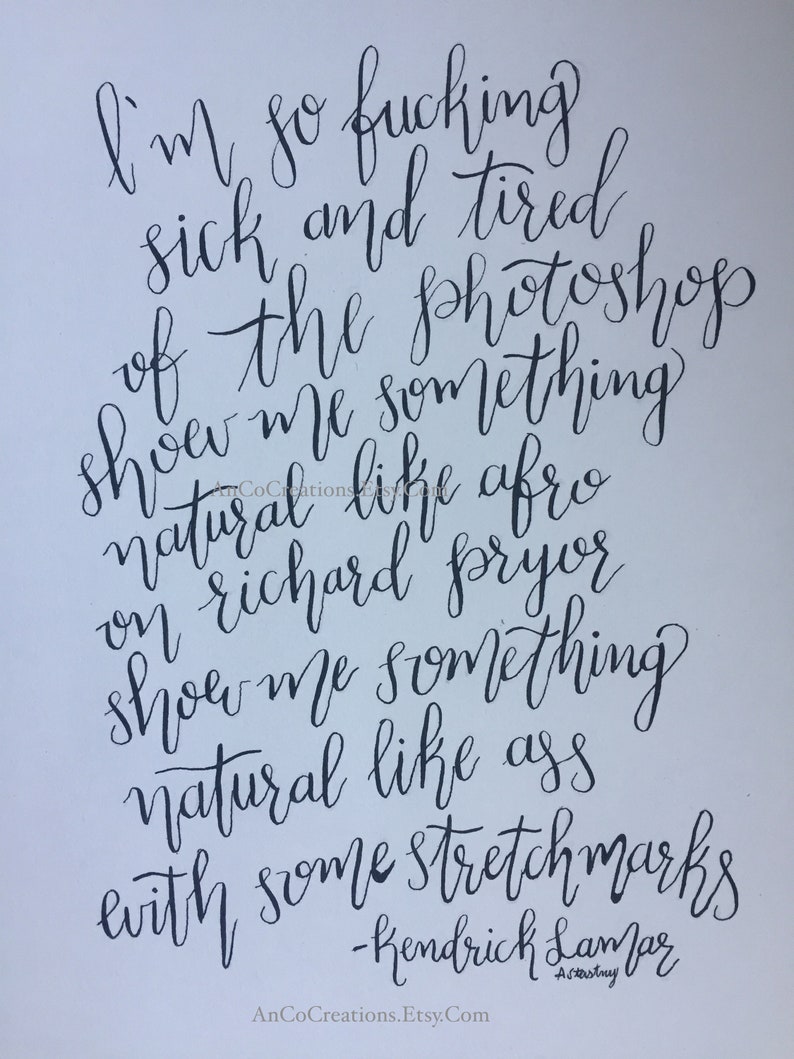 I'm so fucking
sick and tired
of the photoshop
show me something
natural like afro
AnCoCreations.Etsy.Com
on richard pryor
show me something
natural like ass
with some stretchmarks
-Kendrick Lamar
AnCoCreations.Etsy.Com